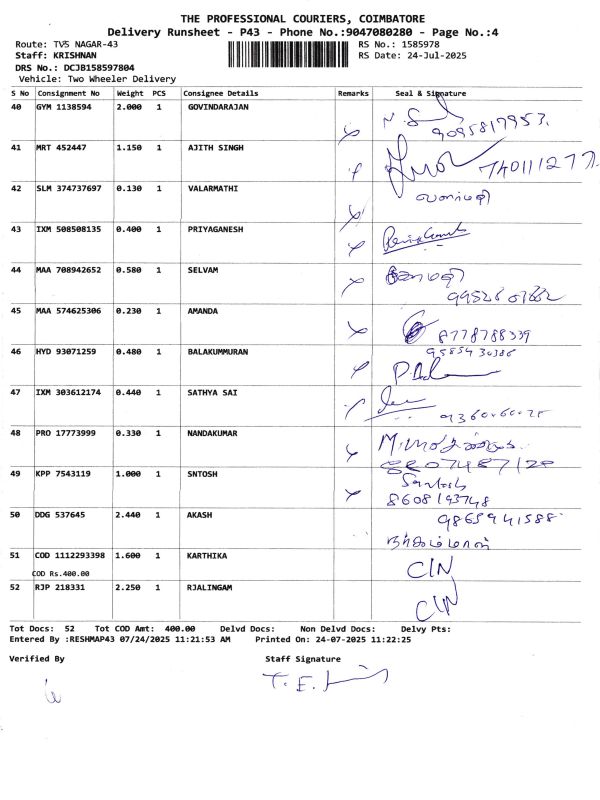 THE PROFESSIONAL COURIERS, COIMBATORE
Delivery Runsheet - P43 - Phone No.:9047080280 - Page No.:4
Route: TVS NAGAR-43 RS No.: 1585978
Staff: KRISHNAN RS Date: 24-Jul-2025
DRS No.: DCJB158597804
Vehicle: Two Wheeler Delivery
S No Consignment No Weight PCS Consignee Details Remarks Seal & Signature
40 GYM 1138594 2.000 1 GOVINDARAJAN
9095817953
41 MRT 452447 1.150 1 AJITH SINGH
42 SLM 374737697 0.130 1 VALARMATHI வளர்மதி
43 IXM 508508135 0.400 1 PRIYAGANESH
44 MAA 708942652 0.580 1 SELVAM
45 MAA 574625306 0.230 1 AMANDA
8778788339
46 HYD 93071259 0.480 1 BALAKUMMURAN
47 IXM 303612174 0.440 1 SATHYA SAI
48 PRO 17773999 0.330 1 NANDAKUMAR
8807487120
49 KPP 7543119 1.000 1 SNTOSH Santosh
8608193748
50 DDG 537645 2.440 1 AKASH 9865941588
51 COD 1112293398 1.600 1 KARTHIKA CIN
COD Rs.400.00
52 RJP 218331 2.250 1 RJALINGAM CIN
Tot Docs: 52 Tot COD Amt: 400.00 Delvd Docs: Non Delvd Docs: Delvy Pts:
Entered By :RESHMAP43 07/24/2025 11:21:53 AM Printed On: 24-07-2025 11:22:25
Verified By Staff Signature